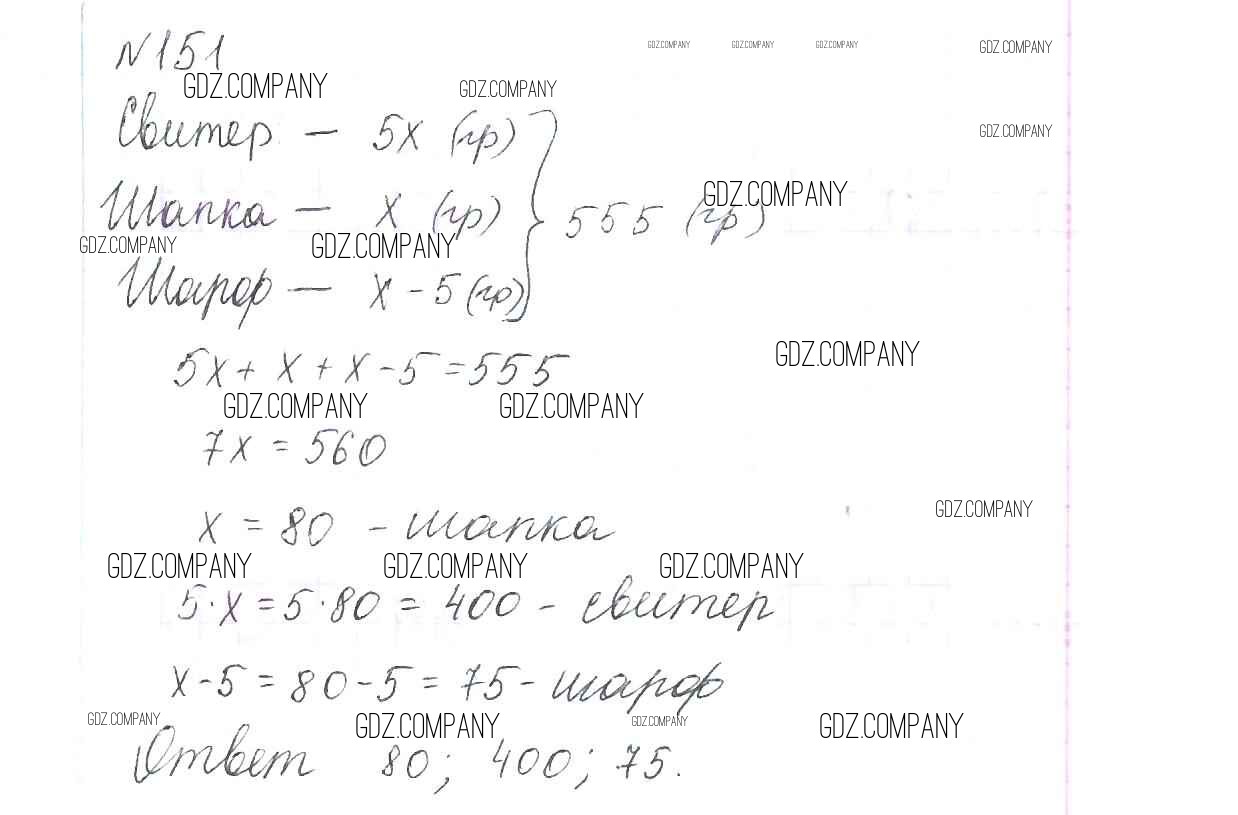 №151
GDZ.COMPANY GDZ.COMPANY GDZ.COMPANY GDZ.COMPANY
GDZ.COMPANY GDZ.COMPANY
Свитер — 5х (гр)
GDZ.COMPANY
GDZ.COMPANY
Шапка — х (гр) } 555 (гр)
GDZ.COMPANY GDZ.COMPANY
Шарф — х - 5 (гр)
5х + х + х - 5 = 555
GDZ.COMPANY
GDZ.COMPANY GDZ.COMPANY
7х = 560
х = 80 - шапка
GDZ.COMPANY
GDZ.COMPANY GDZ.COMPANY GDZ.COMPANY
5·х = 5·80 = 400 - свитер
х - 5 = 80 - 5 = 75 - шарф
GDZ.COMPANY GDZ.COMPANY GDZ.COMPANY GDZ.COMPANY
Ответ 80; 400; 75.